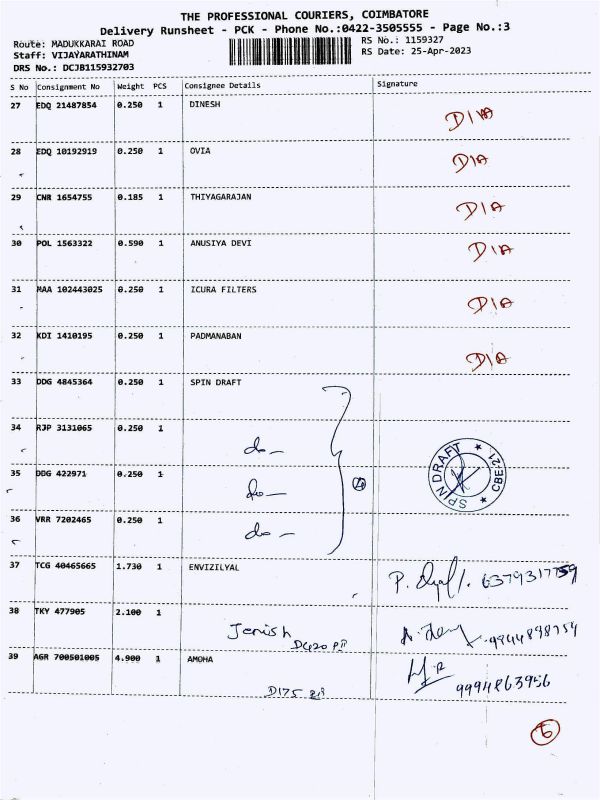 THE PROFESSIONAL COURIERS, COIMBATORE
Delivery Runsheet - PCK - Phone No.:0422-3505555 - Page No.:3
Route: MADUKKARAI ROAD RS No.: 1159327
Staff: VIJAYARATHINAM RS Date: 25-Apr-2023
DRS No.: DCJB115932703
S No Consignment No Weight PCS Consignee Details Signature
27 EDQ 21487854 0.250 1 DINESH DIA
28 EDQ 10192919 0.250 1 OVIA DIA
29 CNR 1654755 0.185 1 THIYAGARAJAN DIA
30 POL 1563322 0.590 1 ANUSIYA DEVI DIA
31 MAA 102443025 0.250 1 ICURA FILTERS DIA
32 KDI 1410195 0.250 1 PADMANABAN DIA
33 DDG 4845364 0.250 1 SPIN DRAFT
34 RJP 3131065 0.250 1 do -
35 DDG 422971 0.250 1 do - 4 SPIN DRAFT CBE-21
36 VRR 7202465 0.250 1 do -
37 TCG 40465665 1.730 1 ENVIZILYAL P. 6379317759
38 TKY 477905 2.100 1 Jenish 9944898759
D420
39 AGR 700501005 4.900 1 AMOHA 9994863956
D175
6